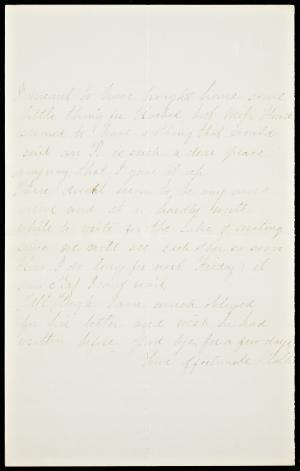 I meant to have bought home some
little thing for but there
seemed to have nothing that would
suit and it is such a dear place
anyway that I gave it up.
There doesn't seem to be any more
news and it is hardly worth
while to write for the sake of writing
since we will see each other so soon
How I do long for next Friday; it
I can't wait.
Tell I am much obliged
for his letter and wish he had
written before. Good bye for a few days
Your affectionate